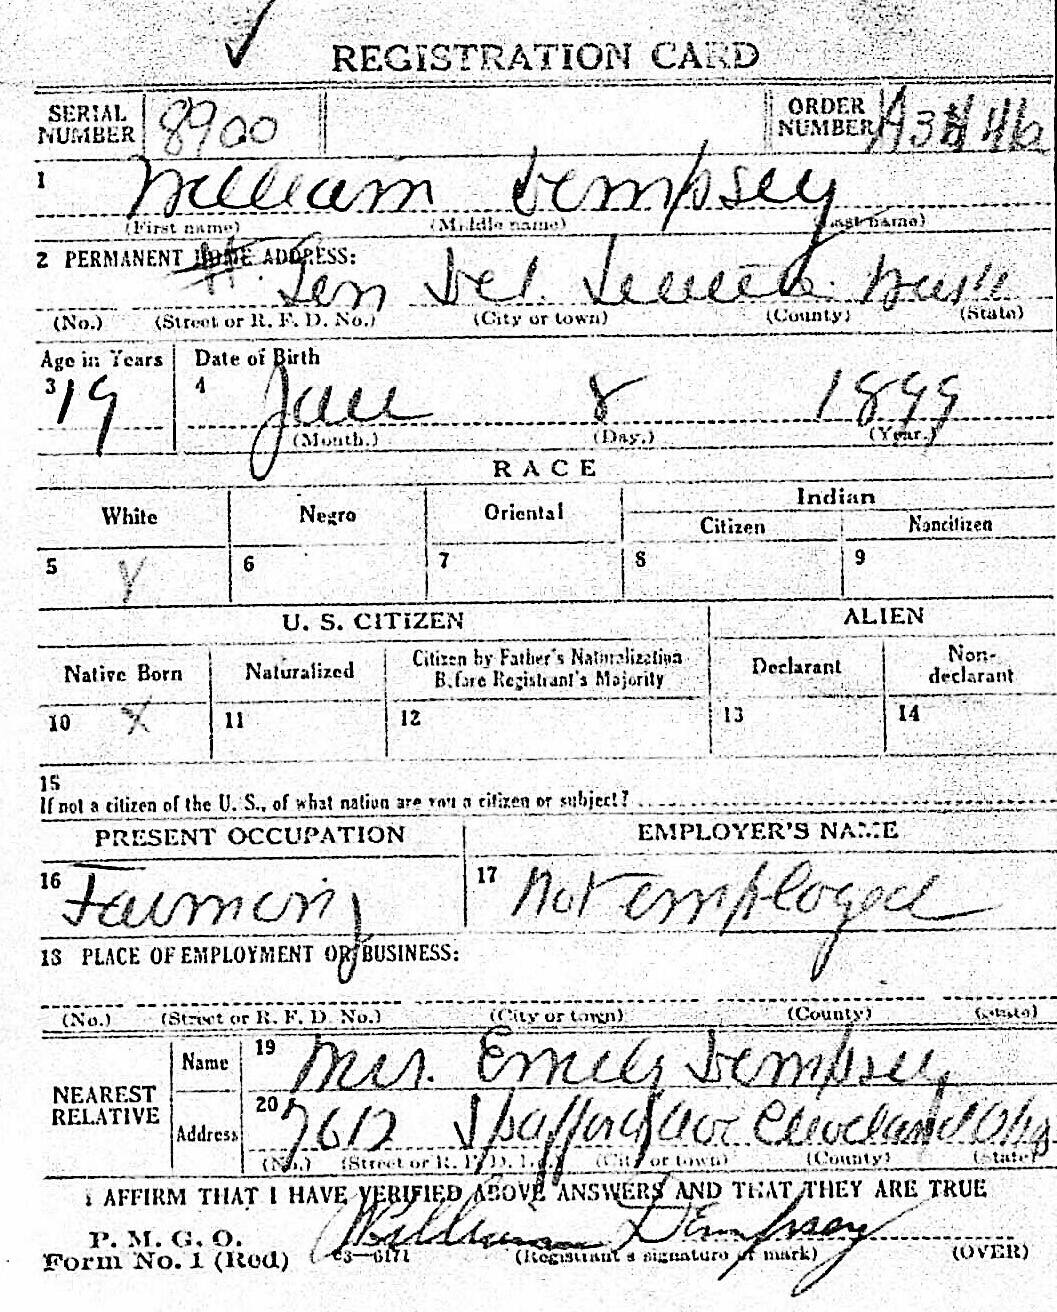 REGISTRATION CARD
SERIAL NUMBER 8900 ORDER NUMBER
1 William Dempsey
(First name) (Middle name) (Last name)
2 PERMANENT HOME ADDRESS:
Gen Del.
(No.) (Street or R. F. D. No.) (City or town) (County) (State)
Age in Years Date of Birth
3 19 4 Jan 8 1899
(Month.) (Day.) (Year.)
RACE
White Negro Oriental Indian
Citizen Noncitizen
5 X 6 7 8 9
U. S. CITIZEN ALIEN
Native Born Naturalized Citizen by Father's Naturalization Before Registrant's Majority Declarant Non-declarant
10 X 11 12 13 14
15
If not a citizen of the U. S., of what nation are you a citizen or subject?
PRESENT OCCUPATION EMPLOYER'S NAME
16 Farming 17 not employed
18 PLACE OF EMPLOYMENT OR BUSINESS:
(No.) (Street or R. F. D. No.) (City or town) (County) (State)
NEAREST RELATIVE Name 19 Mrs. Emily Dempsey
Address 20 7612 Spafford Ave Cleveland Ohio
(No.) (Street or R. F. D. No.) (City or town) (County) (State)
I AFFIRM THAT I HAVE VERIFIED ABOVE ANSWERS AND THAT THEY ARE TRUE
P. M. G. O.
Form No. 1 (Red) 03—6171 William Dempsey
(Registrant's signature or mark) (OVER)